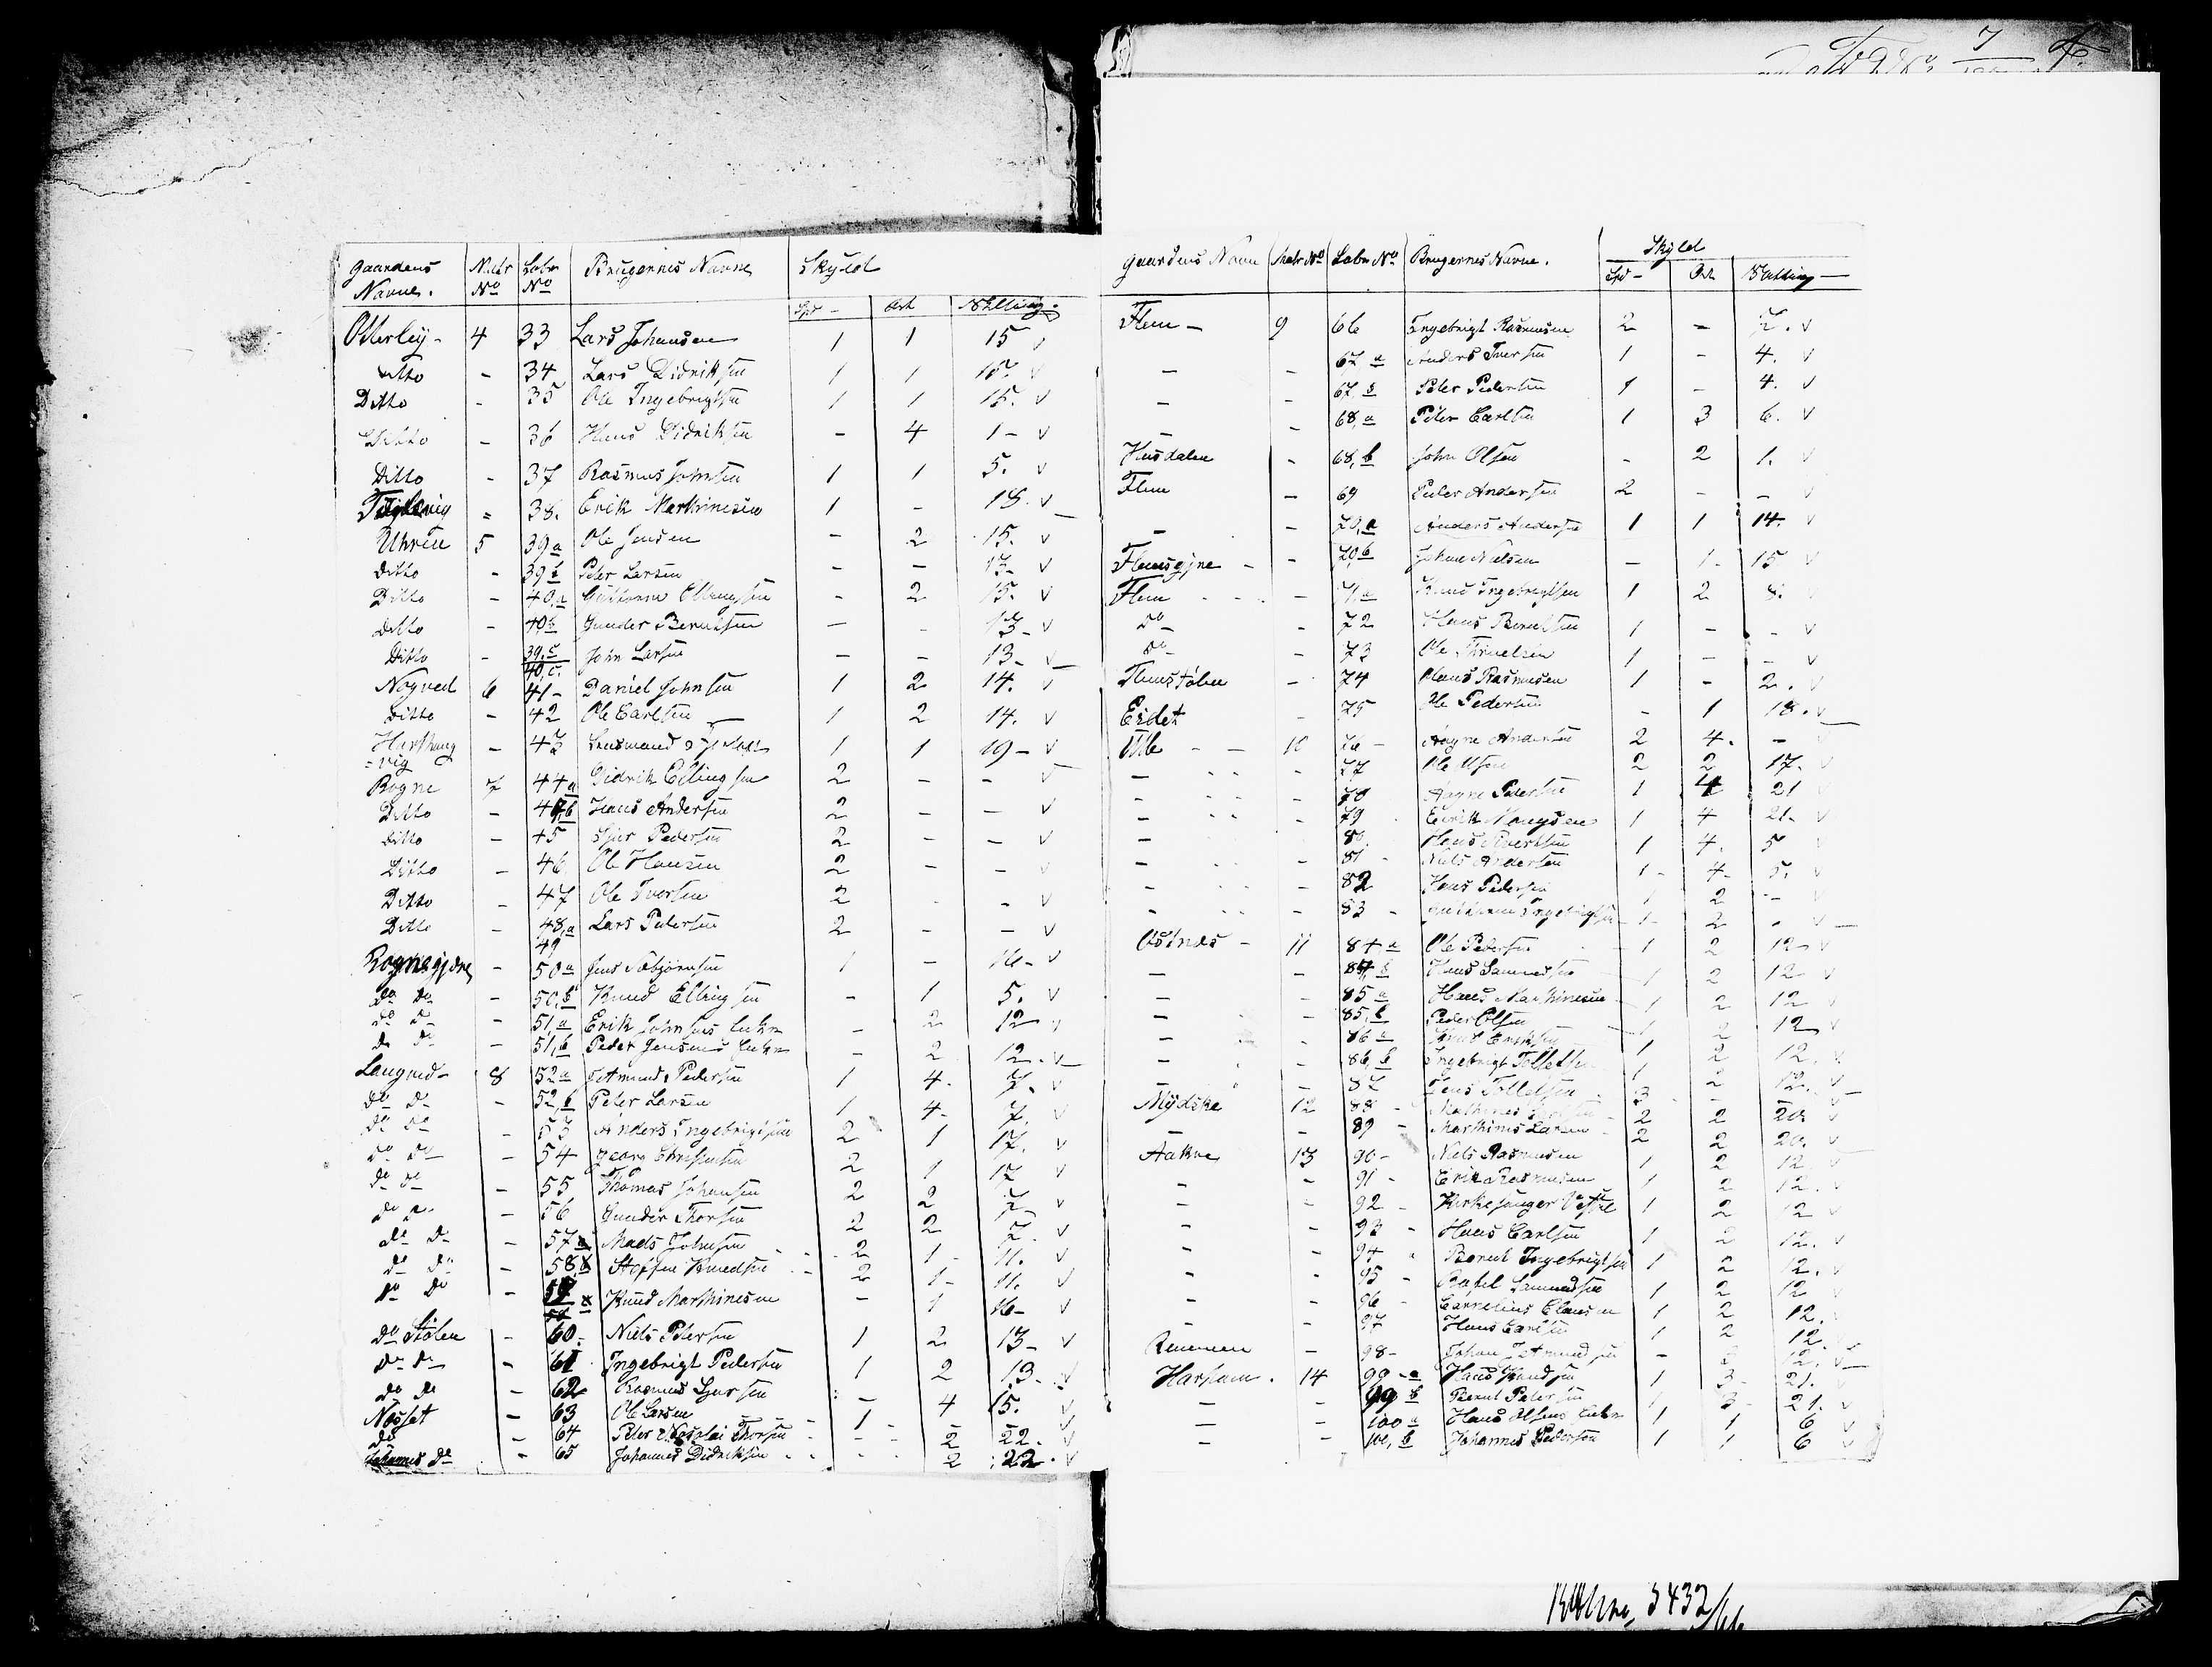 Gaardens Navne. | Matr No | Løbe No | Brugernes Navne | Skyld
Spd - | Ort | Skilling
Otterley - | 4 | 33 | Lars Johansen | 1 | 1 | 15 v
Ditto | - | 34 | Lars Didriksen | 1 | 1 | 15. v
Ditto | - | 35 | Ole Ingebrigtsen | 1 | 1 | 15. v
Ditto | - | 36 | Hans Didriksen | - | 4 | 1 - v
Ditto | - | 37 | Rasmus Johnsen | 1 | 1 | 5. v
- | 38. | Erik Marthinesen | 1 | - | 18. v
Uhren | 5 | 39a | Ole Jensen | - | 2 | 15. v
Ditto | - | 39b | Peter Larsen | - | - | 13- v
Ditto | - | 40,a | Guttorm Ellingsen | - | 2 | 15. v
Ditto | - | 40,b | Gunder Berntsen | - | - | 13- v
Ditto | - | 39,c 40,c. | John Larsen | - | - | 13- v
Nogved | 6 | 41- | Daniel Johnsen | 1 | 2 | 14. v
Ditto | - | 42 | Ole Carlsen | 1 | 2 | 14. v
Harshaug=vig | - | 43 | Lensmand | 1 | 1 | 19- v
Rogne | 7 | 44a | Didrik Ellingsen | 2 | - | - v
Ditto | - | 44b | Hans Andersen | 2 | - | - v
Ditto | - | 45 | Sjur Pedersen | 2 | - | - v
Ditto | - | 46. | Ole Hansen | 2 | - | - v
Ditto | - | 47 | Ole Iversen | 2 | - | - v
Ditto | - | 48,a 49 | Lars Pedersen | 2 | - | - v
Rognegjære | - | 50a | Jens Asbjørnsen | 1 | - | 16- v
Do Do | - | 50,b | Knud Ellingsen | - | 1 | 5. v
Do Do | - | 51,a | Erik Johnsens Enke | - | 2 | 12 v
Do Do | - | 51,b | Peder Jensens Enke | - | 2 | 12. v
Langved- | 8 | 52a | Admund Pedersen | 1 | 4. | 7. v
Do Do | - | 52,b | Peter Larsen | 1 | 4- | 7. v
Do Do | - | 53 | Anders Ingebrigtsen | 2 | 1 | 17. v
Do Do | - | 54 | Georg Christensen | 2 | 1 | 17 v
Do Do | - | 55 | Thomas Johansen | 2 | 2 | 7- v
Do Do | - | 56 | Gunder Thorsen | 2 | 2 | 7. v
Do Do | - | 57a | Mads Johnsen | 2 | 1- | 11. v
Do Do | - | 58,b | Steffen Knudsen | 2 | 1- | 11. v
Do Do | - | Knud Marthinesen | - | 1 | 16- v
Do Stølen | - | 60- | Niels Petersen | 1 | 2 | 13- v
Do Do | - | 61 | Ingebrigt Pedersen | 1 | 2 | 13- v
Do Do | - | 62 | Rasmus Sjursen | - | 4 | 15. v
Nesset | - | 63 | Ole Larsen | 1 | - | - v
Do | - | 64 | Peter Nicolai Thorsen | - | 2 | 22. v
Do | - | 65 | Johannes Didriksen | - | 2 | 22. v
Gaardens Navn | Matr No | Løbe No | Brugernes Navne. | Skyld
Spd - | Ort | Skilling
Flem - | 9 | 66 | Ingebrigt Rasmusen | 2 | - | 7. v
- | - | 67,a | Anders Iversen | 1 | - | 4. v
- | - | 67,b | Peter Pedersen | 1 | - | 4. v
- | - | 68,a | Peter Carlsen | 1 | 3 | 6. v
Husdalen | - | 68,b | John Olsen | - | 2 | 1. v
Flem | - | 69 | Peder Andersen | 2 | - | - v
- | - | 70,a | Anders Andersen | 1 | 1 | 14. v
Flemsgjre - | - | 70b | Johan Nielsen | - | 1- | 15 v
Flem | - | 71,a | Knud Ingebrigtsen | 1 | 2 | 8. v
Do - | - | 72 | Hans Berntsen | 1 | - | - v
Do - | - | 73 | Ole Thruelsen | 1 | - | - v
Flemstølen | - | 74 | Hans Rasmusen | 1 | - | 2. v
Eidet | - | 75 | Ole Pedersen | - | 1 | 18. v
Ulle - - | 10 | 76 - | Aagne Andersen | 2 | 4. | - v
- | 77 | Ole Olsen | 2 | 2 | 17. v
- | 78 | Aagne Pedersen | 1 | 4 | 21 v
- | 79 | Eirik Mangsen | 1 | 4 | 21. v
- | 80. | Hans Knudsen | 1 | 4. | 5 v
- | 81 - | Niels Andersen | 1- | 4- | 5. v
- | 82 | Hans Pedersen | 1 | 2 | - v
- | 83 - | Guttorm Ingebrigtsen | 1- | 2 | - v
Ostnæs - | 11 | 84a | Ole Pedersen | 1 | 2 | 12- v
- | - | 84,b | Hans Samuelsen | 1 | 2 | 12 v
- | - | 85a | Hans Marthinesen | 1 | 2 | 12 v
- | - | 85,b | Peder Olsen | 1 | 2 | 12 v
- | - | 86a | Knud Eriksen | 1 | 2 | 12. v
- | - | 86,b | Ingebrigt Tollefsen | 1 | 2 | 12. v
- | - | 87 | Jens Tollefsen | 3 | - | - v
Mydske | 12 | 88 - | Mathines | 2 | 2 | 20. v
- | - | 89 - | Marthines Larsen | 2 | 2 | 20. v
Aakre | 13 | 90 - | Niels Rasmusen | 1 | 2 | 12. v
- | - | 91 - | Erik Rasmusen | 1 | 2 | 12. v
- | - | 92 - | Kirkesanger | 1 | 2 | 12 v
- | - | 93 - | Hans Carlsen | 1 | 2 | 12. v
- | - | 94 - | Bernt Ingebrigtsen | 1 | 2 | 12. v
- | - | 95 - | Samundsen | 1 | 2 | 12 v
- | - | 96 - | Carnelius Clausen | 1 | 2 | 12. v
- | - | 97 | Hans Carlsen | 1 | 2 | 12. v
- | 98- | Johan Admundsen | - | 12. v
Harham. | 14 | 99-a | Hans Knudsen | 1 | 3- | 21. v
- | - | 99 b | Bernt Petersen | 1 | 3- | 21. v
- | - | 100 a | Hans Olsens Enke | 1 | 1 | 6 v
- | - | 100, b | Johannes Pedersen | 1 | 1 | 6 v
3432/66